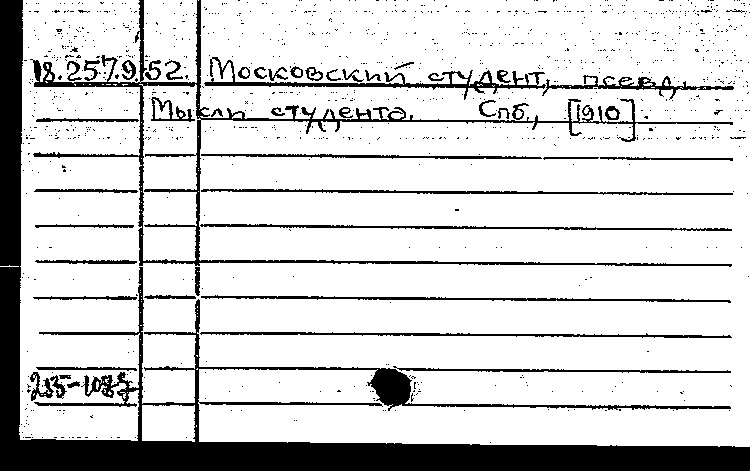 18.257.9.52. Московский студент, псевд.
Мысли студента. Спб., [1910].